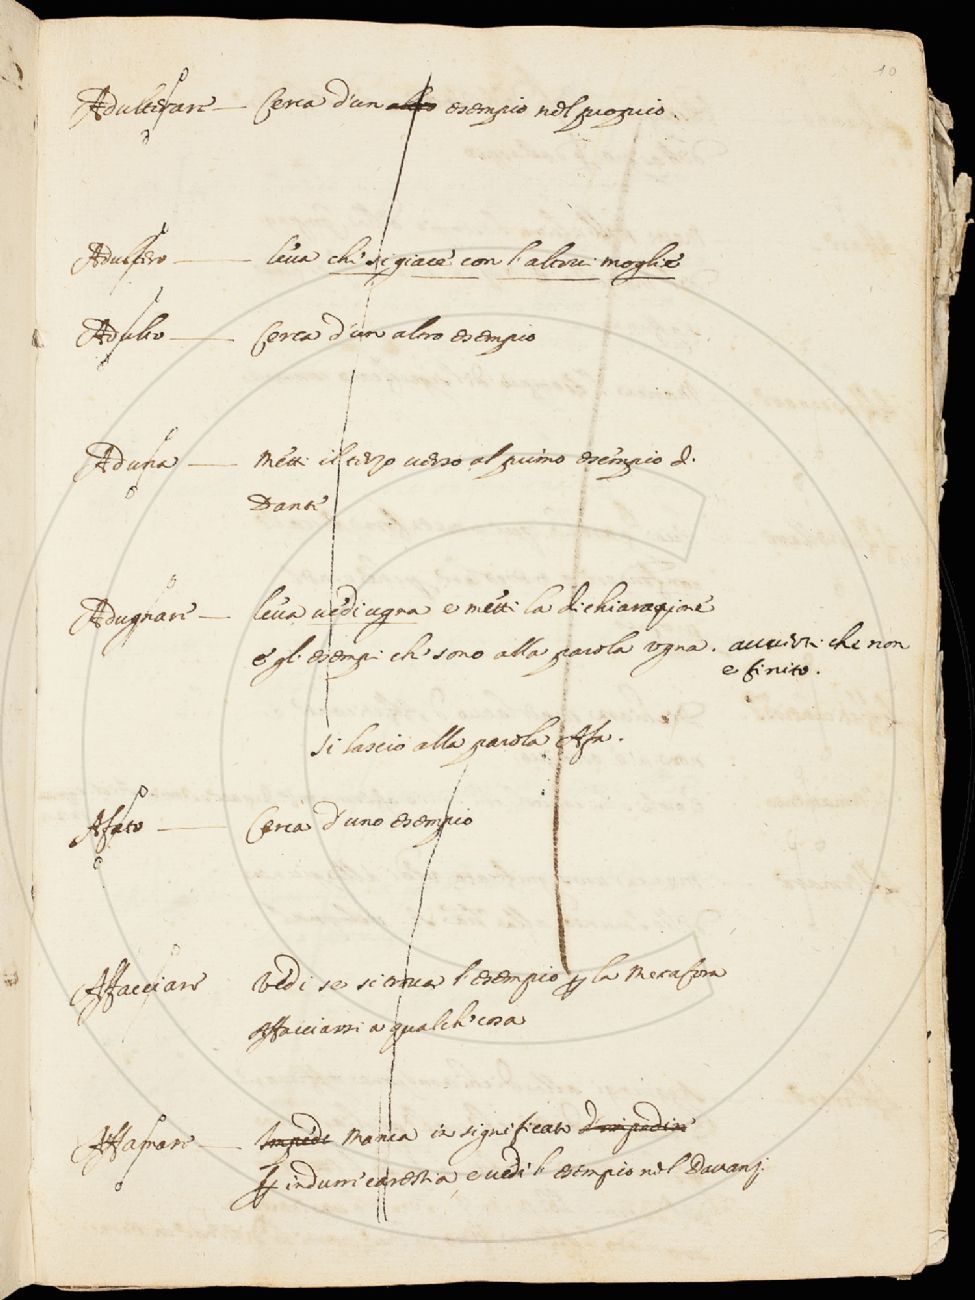 10
Adulterare — Cerca d'un altro esempio nel proprio.
Adultero — leua chi si giace con l'altrui moglie
Adulto — Cerca d'un altro esempio
Aduna — Metti il terzo uerso al primo esempio di
Dante
Adugnare — leua uedi ugna e metti la dichiarazione
e gl'esempi che sono alla parola vgna. auuerti che non
e finito.
si lascio alla parola Afa.
Afato — Cerca d'uno esempio
Affacciare Vedi se si troua l'esempio p la Metafora
Affacciarsi a qualche cosa
Affamare — Manca in significato
p indurre carestia, e uedi l'esempio nel Dauanz.